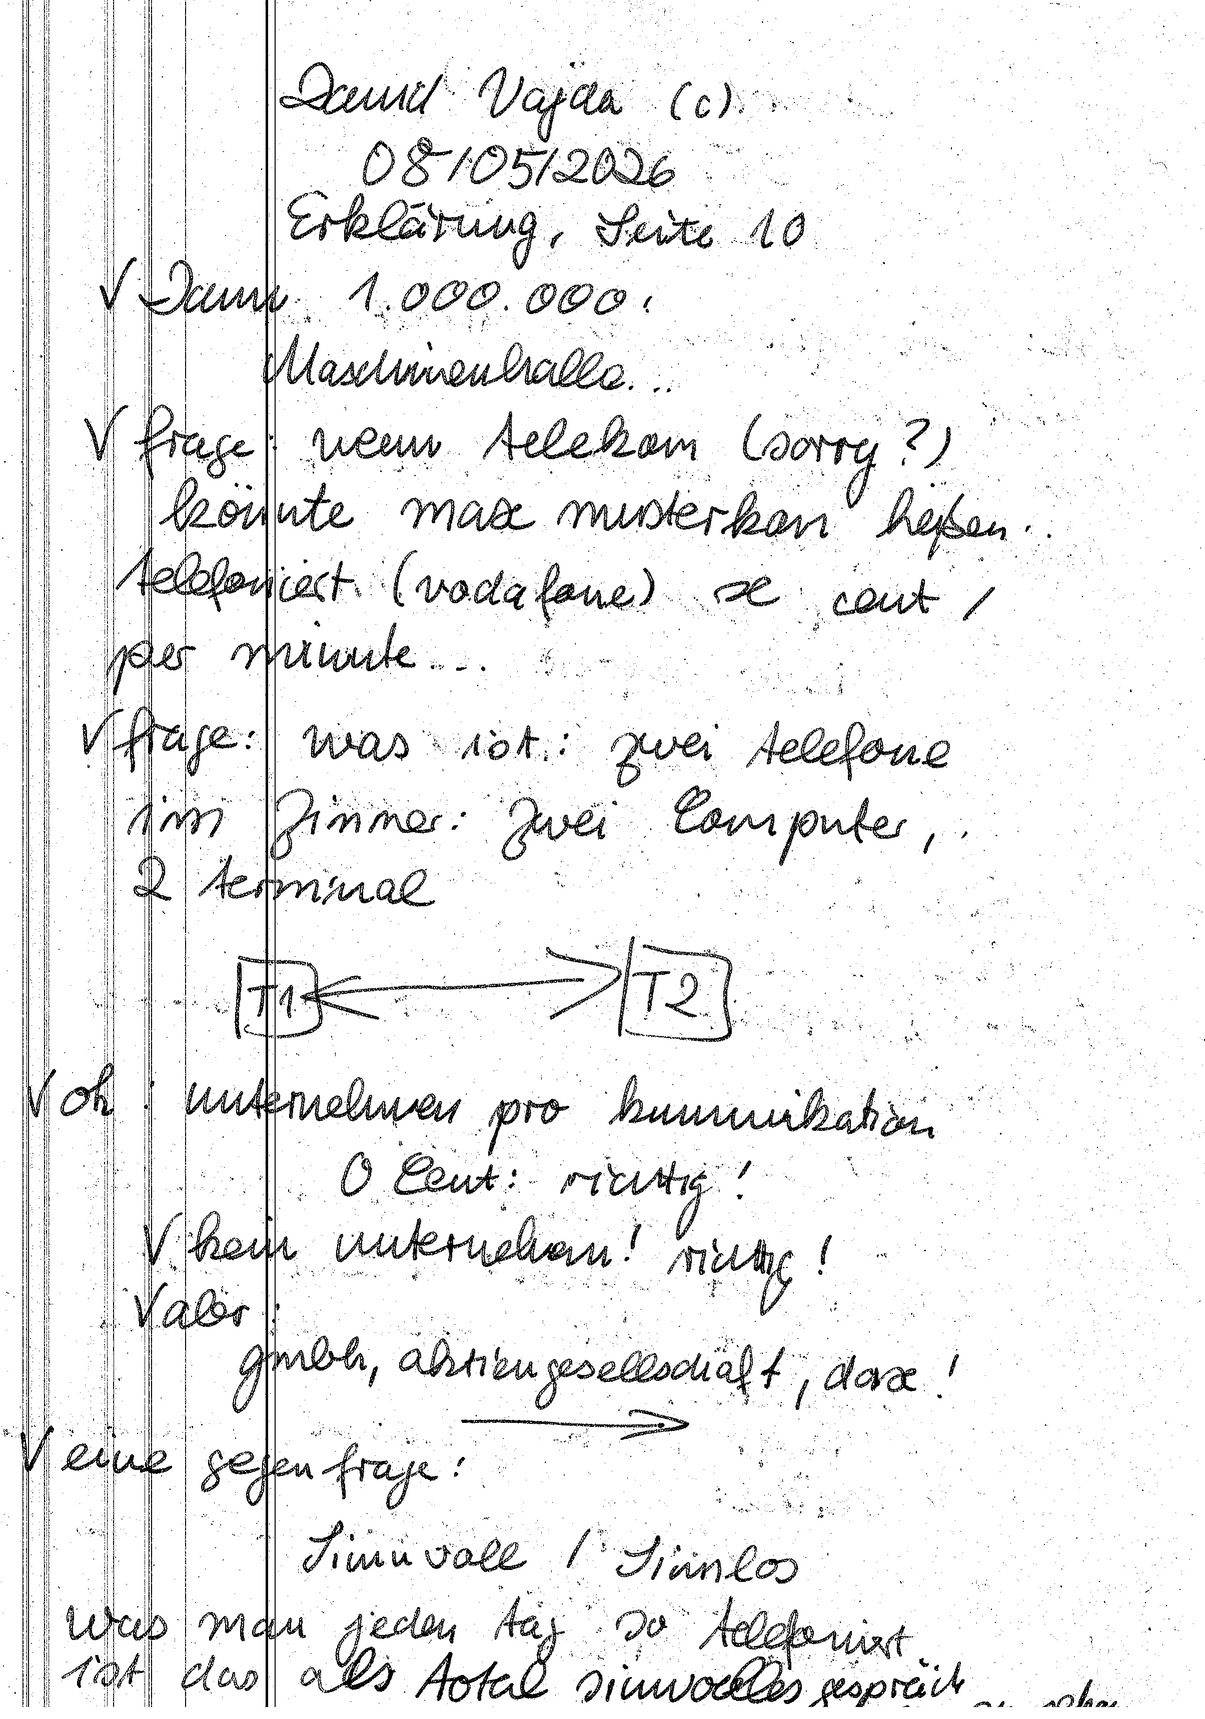 David Vajda (c)
08/05/2026
Erklärung, Seite 10
√ Dann 1.000.000:
Maschinenhalle...
√ frage: wenn telekom (sorry?)
könnte max musterkon heißen..
telefoniert (vodafone) x cent /
per minute...
√ frage: was ist: zwei telefone
im Zimmer: zwei Computer,
2 terminal
T1 T2
√ oh: unternehmen pro kummikation
0 Cent: richtig!
√ kein unternehmen! richtig!
√ aber:
gmbh, aktiengesellschaft, dax!
√ eine gegenfrage:
Sinnvoll / Sinnlos
was man jeden tag so telefoniert
ist das als total sinnvolles gespräch